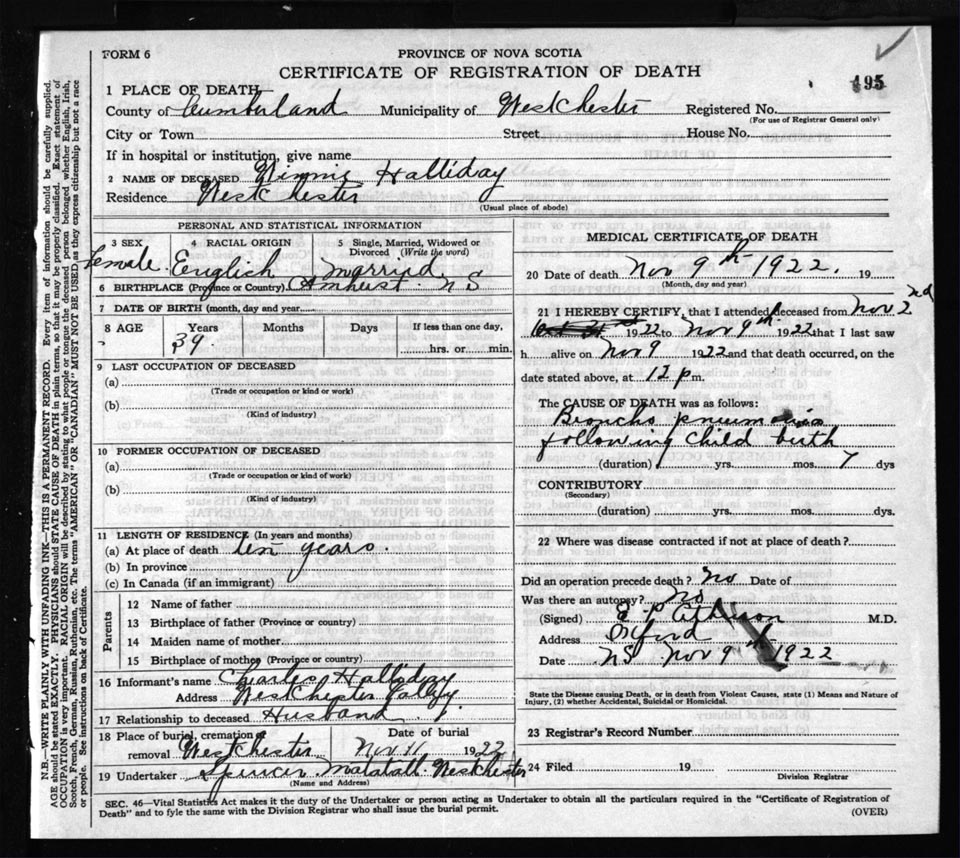 FORM 6
PROVINCE OF NOVA SCOTIA
CERTIFICATE OF REGISTRATION OF DEATH
195
1 PLACE OF DEATH—
County of Cumberland Municipality of Westchester Registered No.
(For use of Registrar General only)
City or Town Street House No.
If in hospital or institution, give name
2 NAME OF DECEASED Minnie Halliday
Residence Westchester
(Usual place of abode)
PERSONAL AND STATISTICAL INFORMATION
3 SEX 4 RACIAL ORIGIN 5 Single, Married, Widowed or
Divorced (Write the word)
Female English Married
6 BIRTHPLACE (Province or Country) Amherst N S
7 DATE OF BIRTH (month, day and year)
8 AGE Years Months Days If less than one day,
39 hrs. or min.
9 LAST OCCUPATION OF DECEASED
(a)
(Trade or occupation or kind or work)
(b)
(Kind of industry)
10 FORMER OCCUPATION OF DECEASED
(a)
(Trade or occupation or kind of work)
(b)
(Kind of industry)
11 LENGTH OF RESIDENCE (In years and months)
(a) At place of death ten years.
(b) In province
(c) In Canada (if an immigrant)
Parents
12 Name of father
13 Birthplace of father (Province or country)
14 Maiden name of mother
15 Birthplace of mother (Province or country)
16 Informant's name Charles Halliday
Address Westchester Valley
17 Relationship to deceased Husband
18 Place of burial, cremation or Date of burial
removal Westchester Nov 11 1922
19 Undertaker Spencer Westchester
(Name and Address)
MEDICAL CERTIFICATE OF DEATH
20 Date of death Nov 9th 1922. 19
(Month, day and year)
21 I HEREBY CERTIFY, that I attended deceased from Nov 2nd
1922 to Nov 9th 1922 that I last saw
h alive on Nov 9 1922 and that death occurred, on the
date stated above, at 12 p m.
The CAUSE OF DEATH was as follows:
Broncho pneumonia
following Child birth
(duration) yrs. mos. 7 dys
CONTRIBUTORY
(Secondary)
(duration) yrs. mos. dys.
22 Where was disease contracted if not at place of death?
Did an operation precede death? No Date of
Was there an autopsy? No
(Signed) E. P. Atkinson M.D.
Address Oxford
Date NS Nov 9th 1922
State the Disease causing Death, or in death from Violent Causes, state (1) Means and Nature of
Injury, (2) whether Accidental, Suicidal or Homicidal.
23 Registrar's Record Number
24 Filed 19
Division Registrar
SEC. 46—Vital Statistics Act makes it the duty of the Undertaker or person acting as Undertaker to obtain all the particulars required in the "Certificate of Registration of
Death" and to fyle the same with the Division Registrar who shall issue the burial permit. (OVER)
N.B.—WRITE PLAINLY WITH UNFADING INK—THIS IS A PERMANENT RECORD. Every item of information should be carefully supplied.
AGE should be stated EXACTLY. PHYSICIANS should STATE CAUSE OF DEATH in plain terms, so that it may be properly classified. Exact statement of
OCCUPATION is very important. RACIAL ORIGIN will be described by stating to what people or tongue the deceased person belonged whether English, Irish,
Scotch, French, German, Russian, Ruthenian, etc. The terms "AMERICAN" or "CANADIAN" MUST NOT BE USED as they express citizenship but not a race
or people. See instructions on back of Certificate.